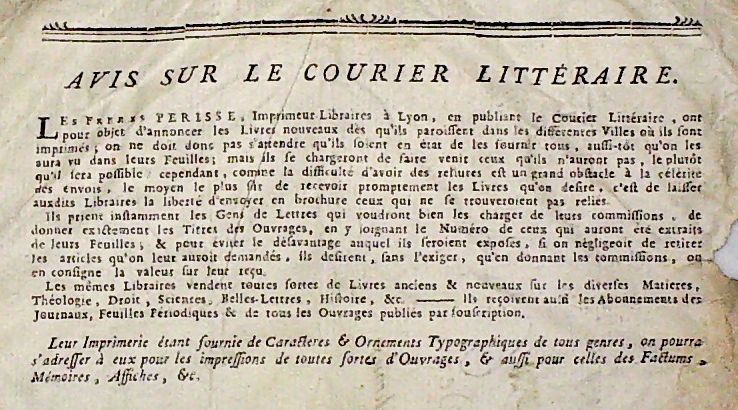 AVIS SUR LE COURIER LITTÉRAIRE.
LES FRERES PERISSE, Imprimeur-Libraires à Lyon, en publiant le Courier Littéraire, ont
pour objet d'annoncer les Livres nouveaux dès qu'ils paroissent dans les différentes Villes où ils sont
imprimés; on ne doit donc pas s'attendre qu'ils soient en état de les fournir tous, aussi-tôt qu'on les
aura vu dans leurs Feuilles; mais ils se chargeront de faire venir ceux qu'ils n'auront pas, le plutôt
qu'il sera possible: cependant, comme la difficulté d'avoir des reliures est un grand obstacle à la célérité
des envois, le moyen le plus sûr de recevoir promptement les Livres qu'on desire, c'est de laisser
auxdits Libraires la liberté d'envoyer en brochure ceux qui ne se trouveroient pas reliés.
Ils prient instamment les Gens de Lettres qui voudront bien les charger de leurs commissions, de
donner exactement les Titres des Ouvrages, en y joignant le Numéro de ceux qui auront été extraits
de leurs Feuilles; & pour éviter le désavantage auquel ils seroient exposés, si on négligeoit de retirer
les articles qu'on leur auroit demandés, ils desirent, sans l'exiger, qu'en donnant les commissions, on
en consigne la valeur sur leur reçu.
Les mêmes Libraires vendent toutes sortes de Livres anciens & nouveaux sur les diverses Matieres,
Théologie, Droit, Sciences, Belles-Lettres, Histoire, &c. —— Ils reçoivent aussi les Abonnements des
Journaux, Feuilles Périodiques & de tous les Ouvrages publiés par souscription.
Leur Imprimerie étant fournie de Caracteres & Ornements Typographiques de tous genres, on pourra
s'adresser à eux pour les impressions de toutes sortes d'Ouvrages, & aussi pour celles des Factums,
Mémoires, Affiches, &c.